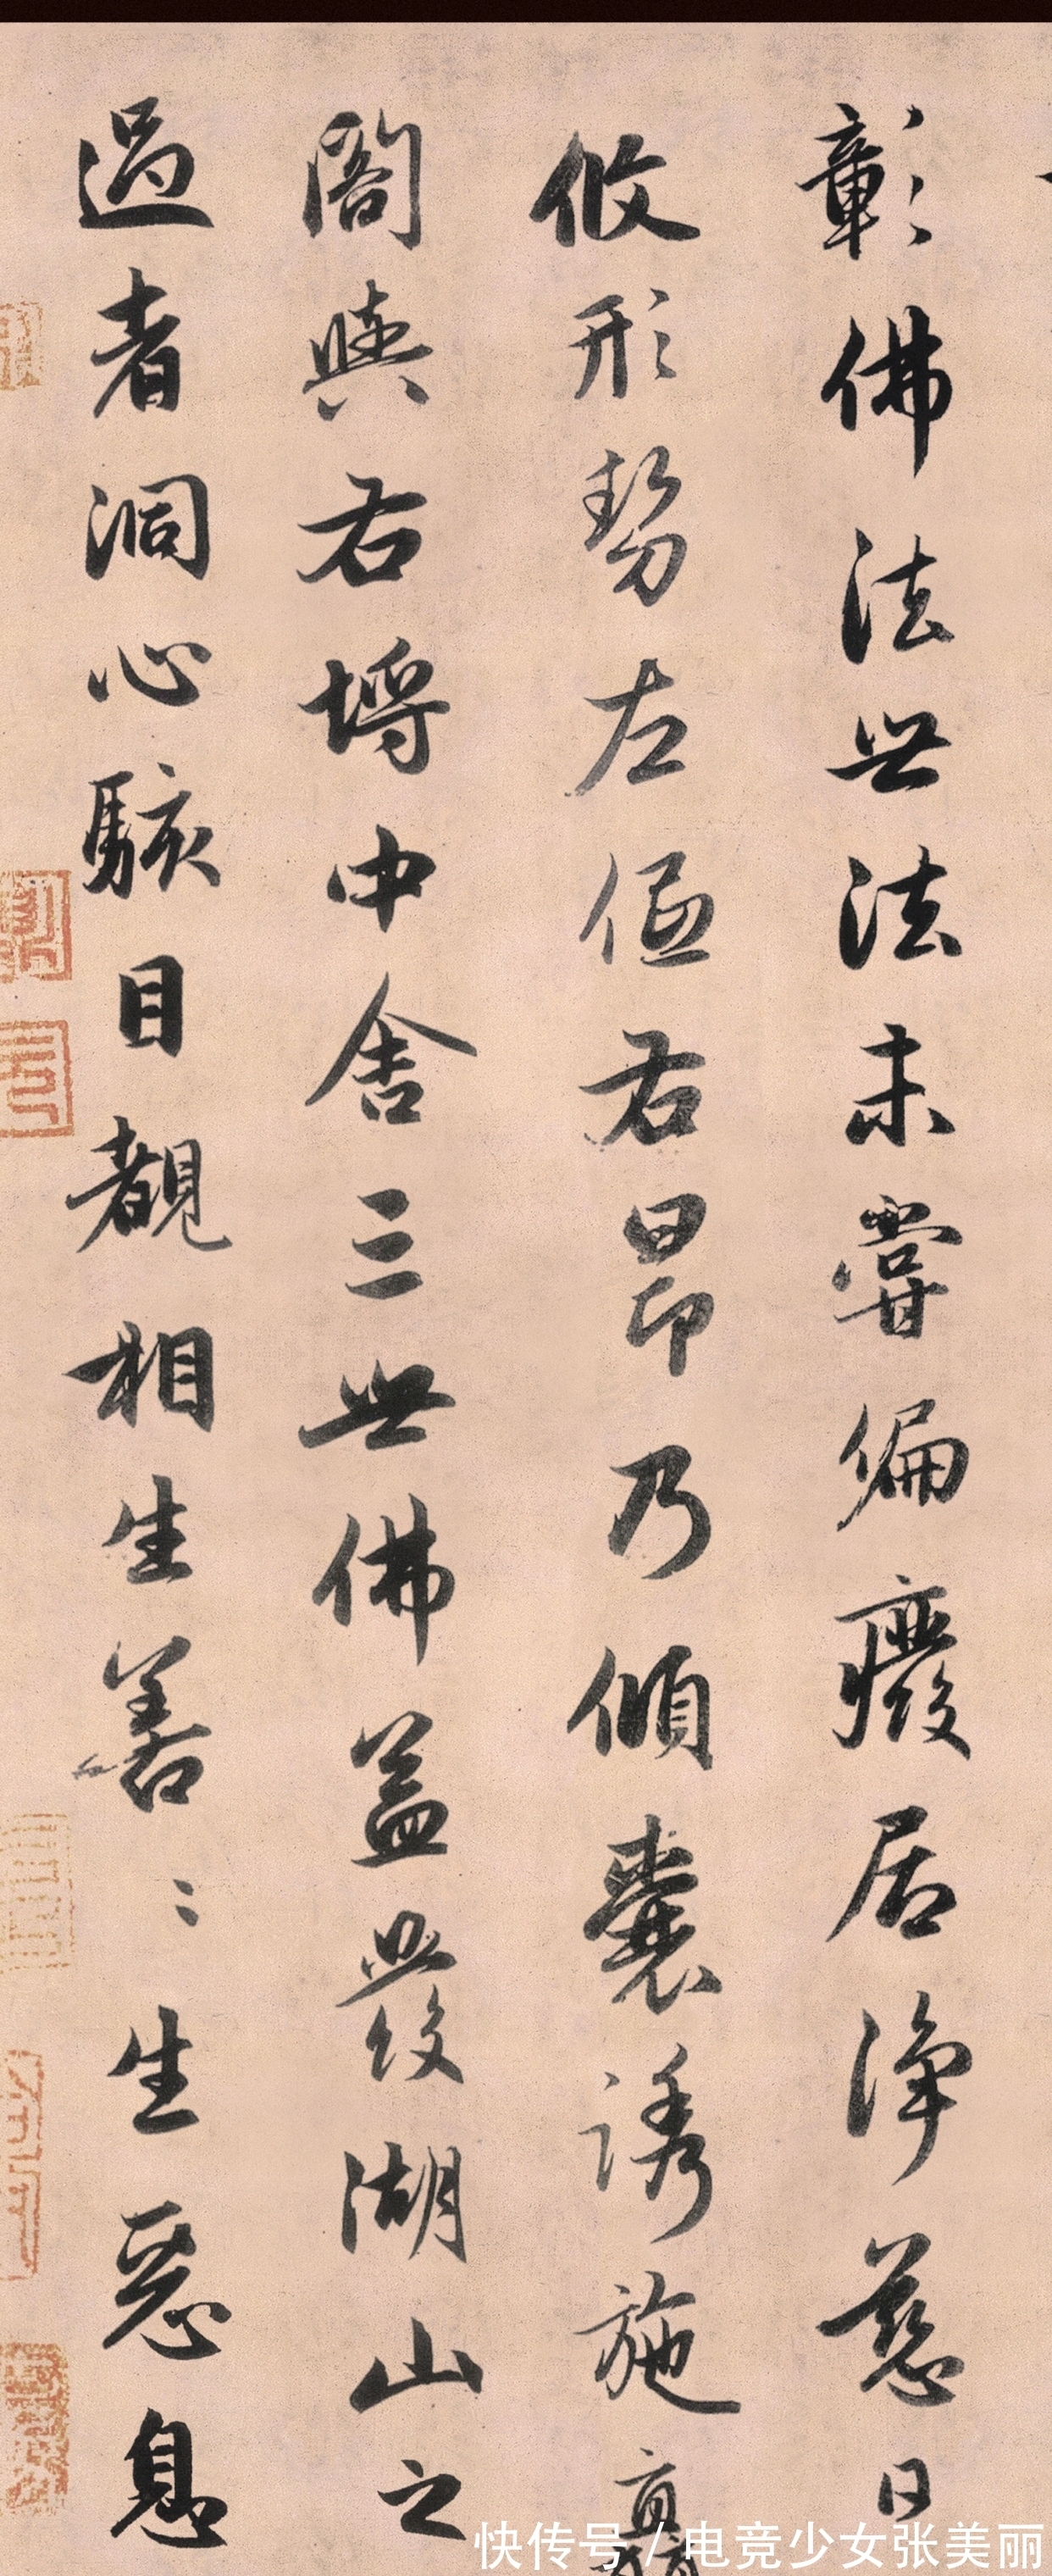 彰佛法世法未嘗偏廢居淨慈日
攸形勢左偃右昂乃傾囊誘施
閣與右埒中舍三世佛蓋發湖山之
過者洞心駭目覩相生善〻生惡息
快传号/电竞少女张美丽